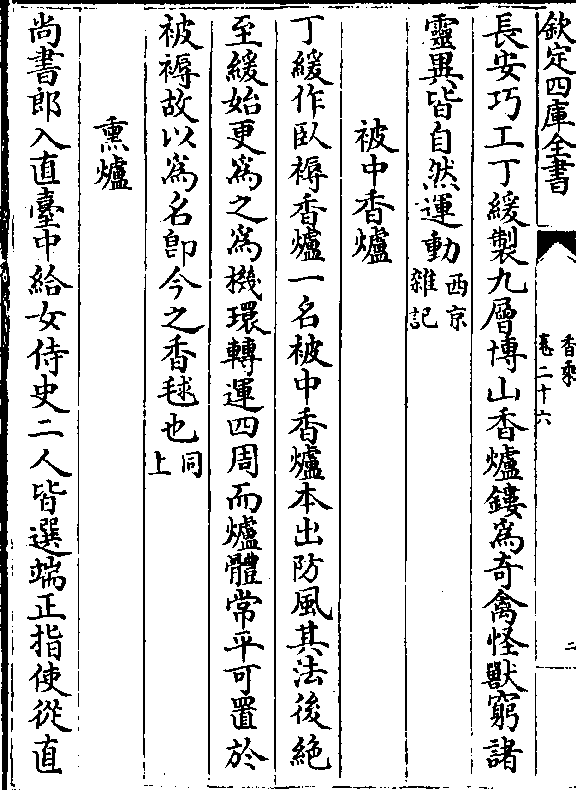 欽定四庫全書
香乘
卷二十六
二
長安巧工丁緩製九層博山香爐鏤為奇禽怪獸窮諸
靈異皆自然運動西京雜記
被中香爐
丁緩作臥褥香爐一名被中香爐本出防風其法後絶
至緩始更為之為機環轉運四周而爐體常平可置於
被褥故以為名卽今之香毬也同上
熏爐
尚書郎入直臺中給女侍史二人皆選端正指使從直